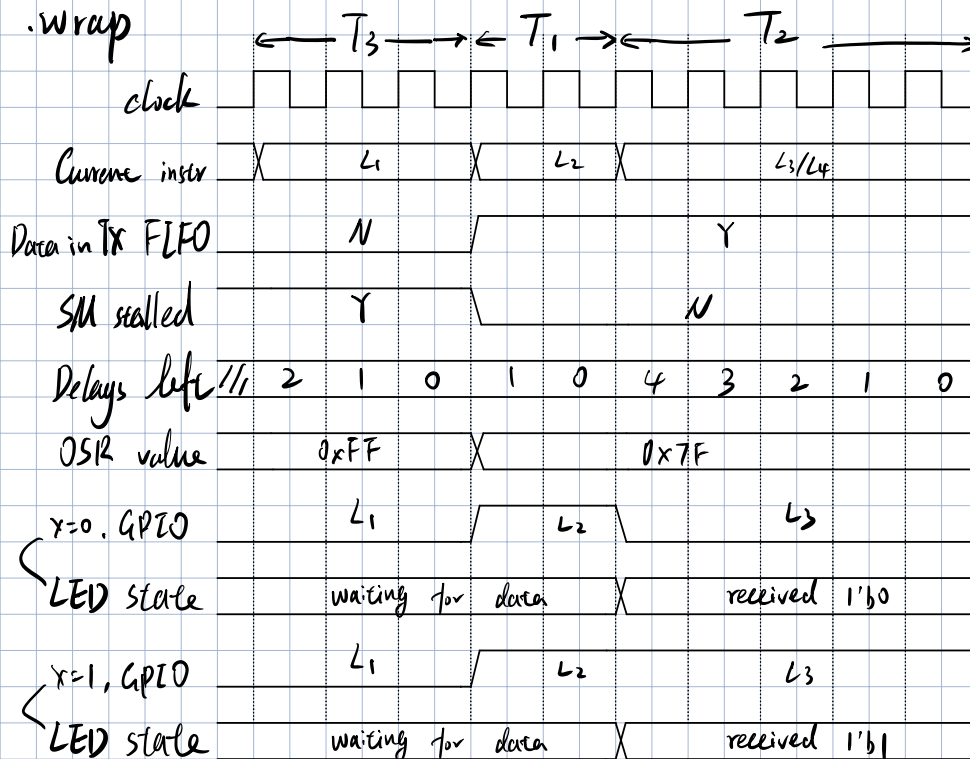 .wrap T3 T1 T2
clock
Current instr L1 L2 L3/L4
Data in TX FIFO N Y
SM stalled Y N
Delays left 2 1 0 1 0 4 3 2 1 0
OSR value 0xFF 0x7F
x=0, GPIO L1 L2 L3
LED state waiting for data received 1'b0
x=1, GPIO L1 L2 L3
LED state waiting for data received 1'b1